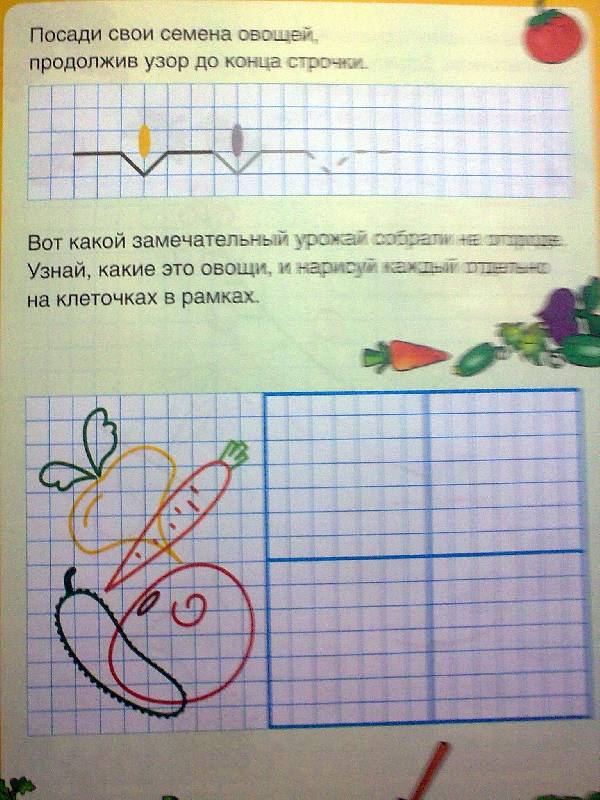 Посади свои семена овощей,
продолжив узор до конца строчки.
Вот какой замечательный урожай собрали на огороде.
Узнай, какие это овощи, и нарисуй каждый отдельно
на клеточках в рамках.